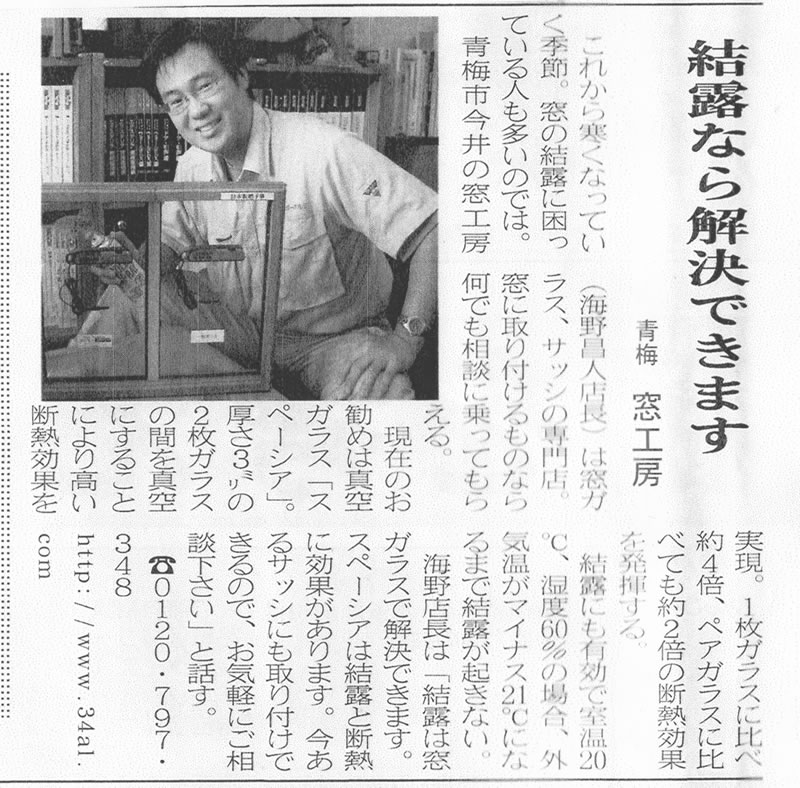 結露なら解決できます
青梅 窓工房
これから寒くなってい
く季節。窓の結露に困っ
ている人も多いのでは。
青梅市今井の窓工房
（海野昌人店長）は窓ガ
ラス、サッシの専門店。
窓に取り付けるものなら
何でも相談に乗ってもら
える。
現在のお
勧めは真空
ガラス「ス
ペーシア」。
厚さ3㍉の
2枚ガラス
の間を真空
にすること
により高い
断熱効果を
実現。1枚ガラスに比べ
約4倍、ペアガラスに比
べても約2倍の断熱効果
を発揮する。
結露にも有効で室温20
℃、湿度60％の場合、外
気温がマイナス21℃にな
るまで結露が起きない。
海野店長は「結露は窓
ガラスで解決できます。
スペーシアは結露と断熱
に効果があります。今あ
るサッシにも取り付けで
きるので、お気軽にご相
談下さい」と話す。
☎0120・797・
348
http://www.34al.
com